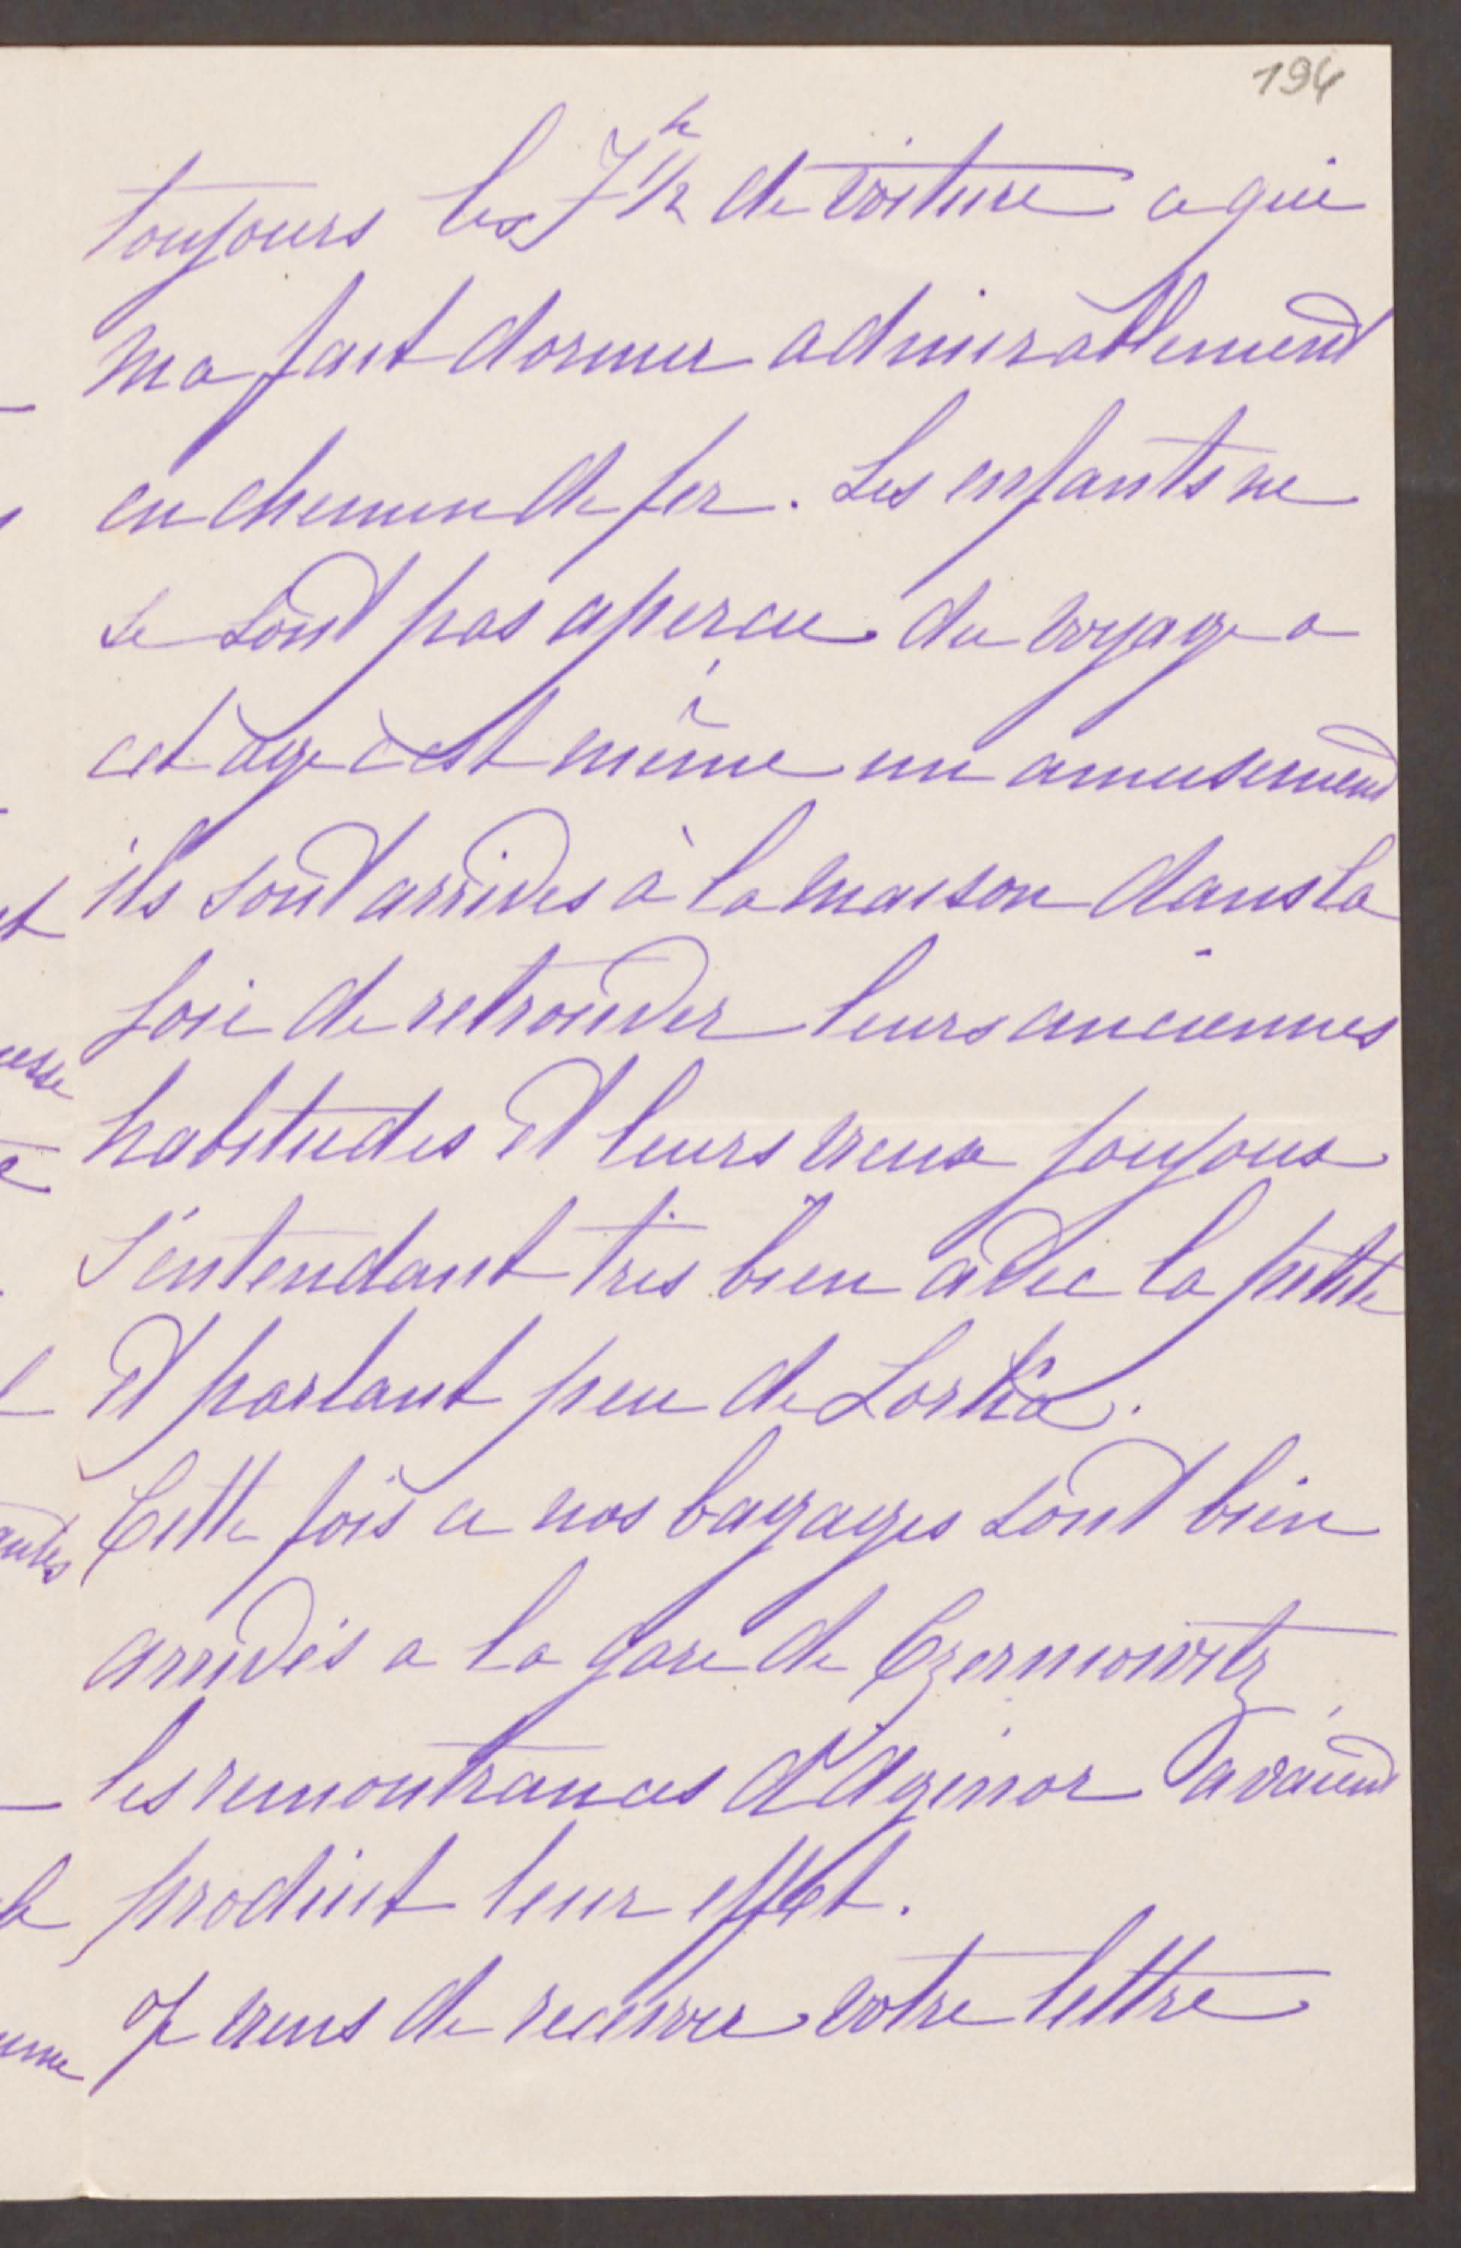 194
toujours les 7h 1/2 de voiture ce qui
m'a fait dormir admirablement
en chemin de fer. Les enfants ne
se sont pas apercu du voyage a
cet âge c'est même un amusement
ils sont arrivés à la maison dans la
joie de retrouver leurs anciennes
habitudes et leurs vieux joujoux
s'entendant très bien avec la petite
et parlant peu de
Cette fois ci nos bagages sont bien
arrivés a la gare de Czernowitz
les remontrances d'Agénor avaient
produit leur effet.
Je viens de recevoir votre lettre